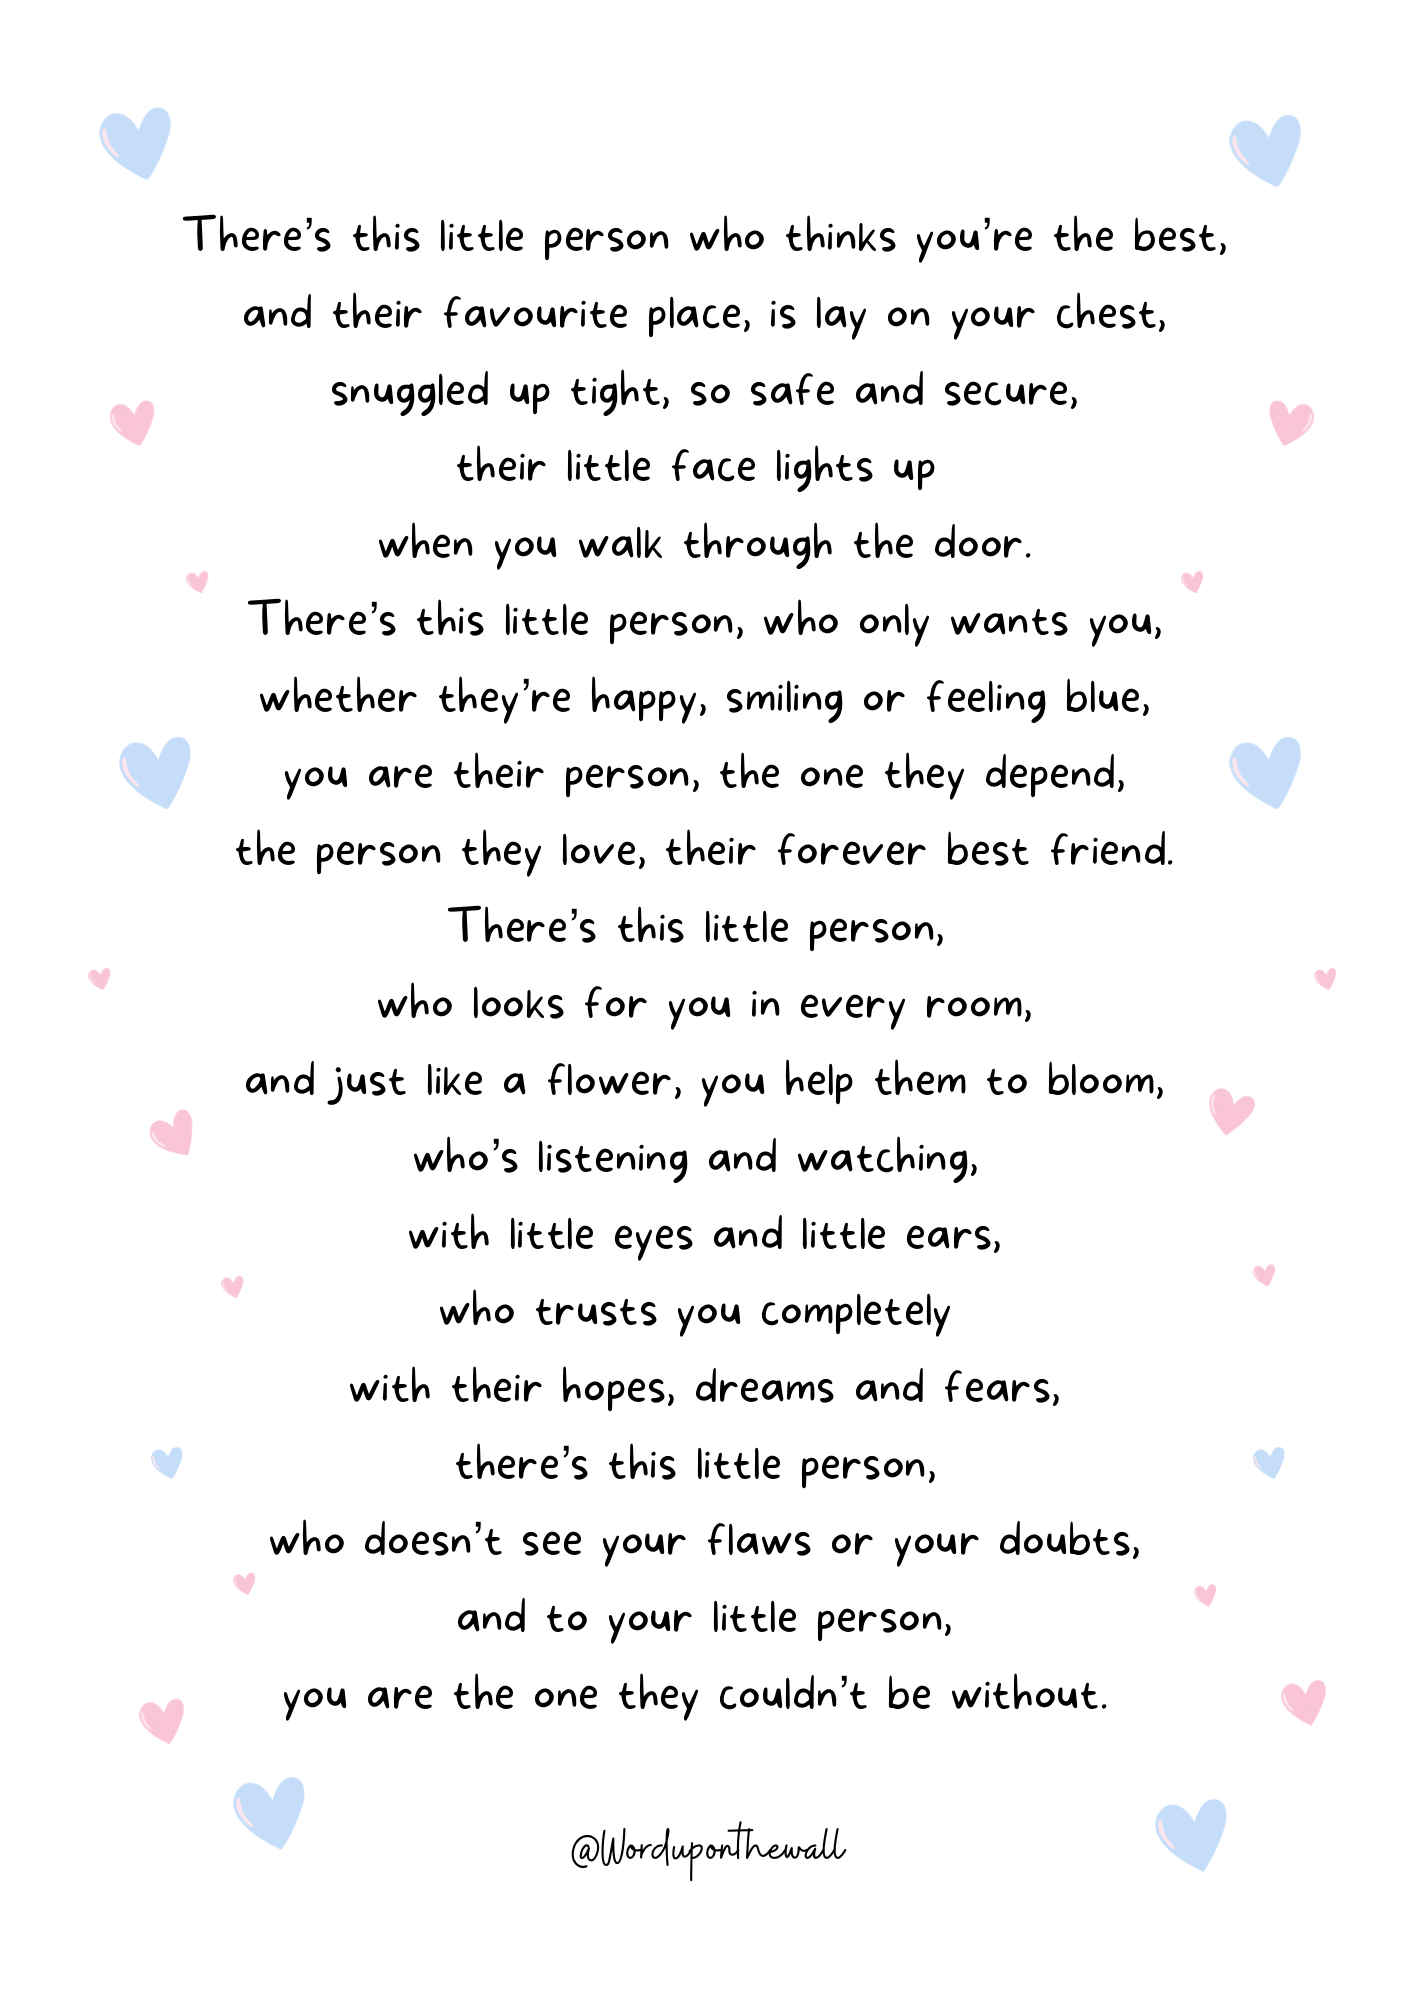 There's this little person who thinks you're the best,
and their favourite place, is lay on your chest,
snuggled up tight, so safe and secure,
their little face lights up
when you walk through the door.
There's this little person, who only wants you,
whether they're happy, smiling or feeling blue,
you are their person, the one they depend,
the person they love, their forever best friend.
There's this little person,
who looks for you in every room,
and just like a flower, you help them to bloom,
who's listening and watching,
with little eyes and little ears,
who trusts you completely
with their hopes, dreams and fears,
there's this little person,
who doesn't see your flaws or your doubts,
and to your little person,
you are the one they couldn't be without.
@Worduponthewall